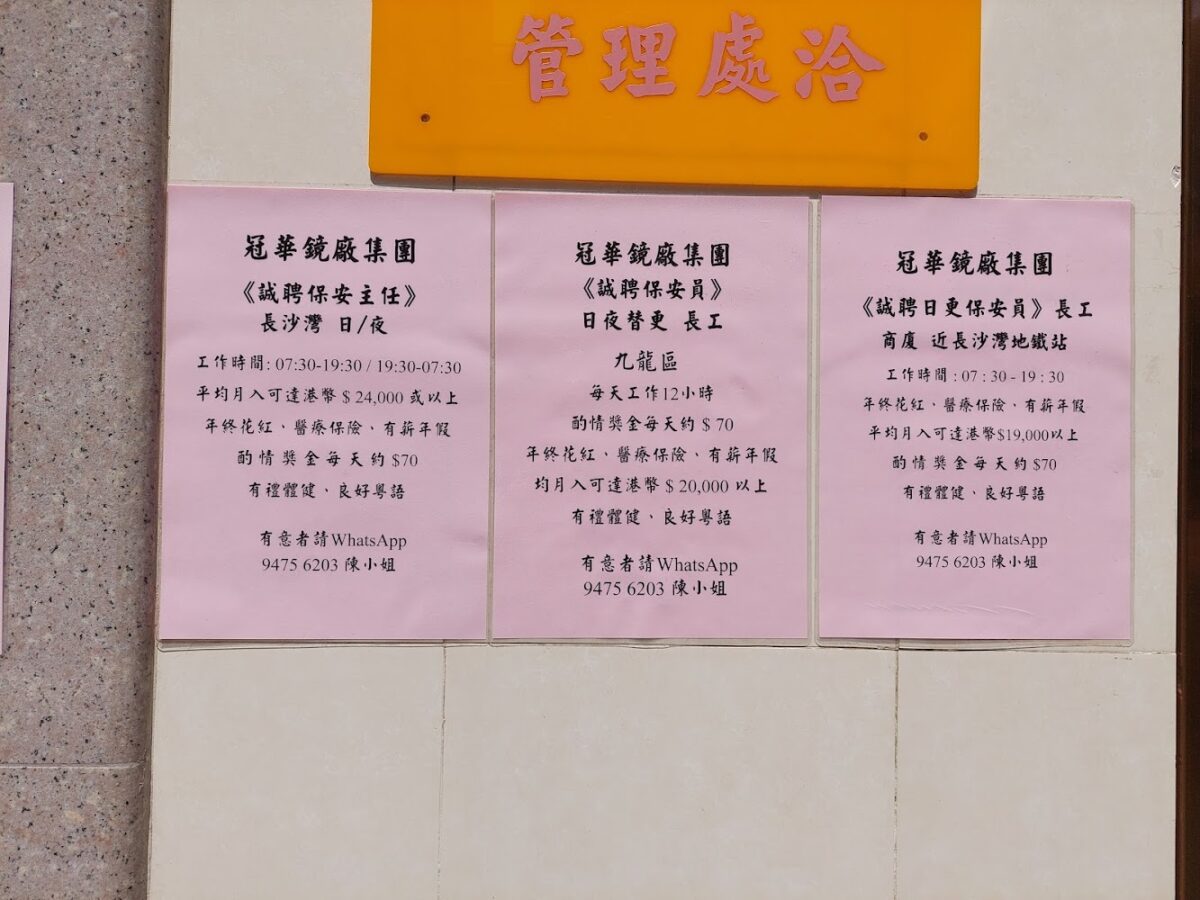 管理處洽
冠華鏡廠集團
《誠聘保安主任》
長沙灣 日/夜
工作時間: 07:30-19:30 / 19:30-07:30
平均月入可達港幣 $ 24,000 或以上
年終花紅、醫療保險、有薪年假
酌情獎金每天約 $70
有禮體健、良好粵語
有意者請WhatsApp
9475 6203 陳小姐
冠華鏡廠集團
《誠聘保安員》
日夜替更 長工
九龍區
每天工作12小時
酌情獎金每天約 $ 70
年終花紅、醫療保險、有薪年假
均月入可達港幣 $ 20,000 以上
有禮體健、良好粵語
有意者請WhatsApp
9475 6203 陳小姐
冠華鏡廠集團
《誠聘日更保安員》長工
商廈 近長沙灣地鐵站
工作時間 : 07 : 30 - 19 : 30
年終花紅、醫療保險、有薪年假
平均月入可達港幣$19,000以上
酌情獎金每天約 $70
有禮體健、良好粵語
有意者請WhatsApp
9475 6203 陳小姐